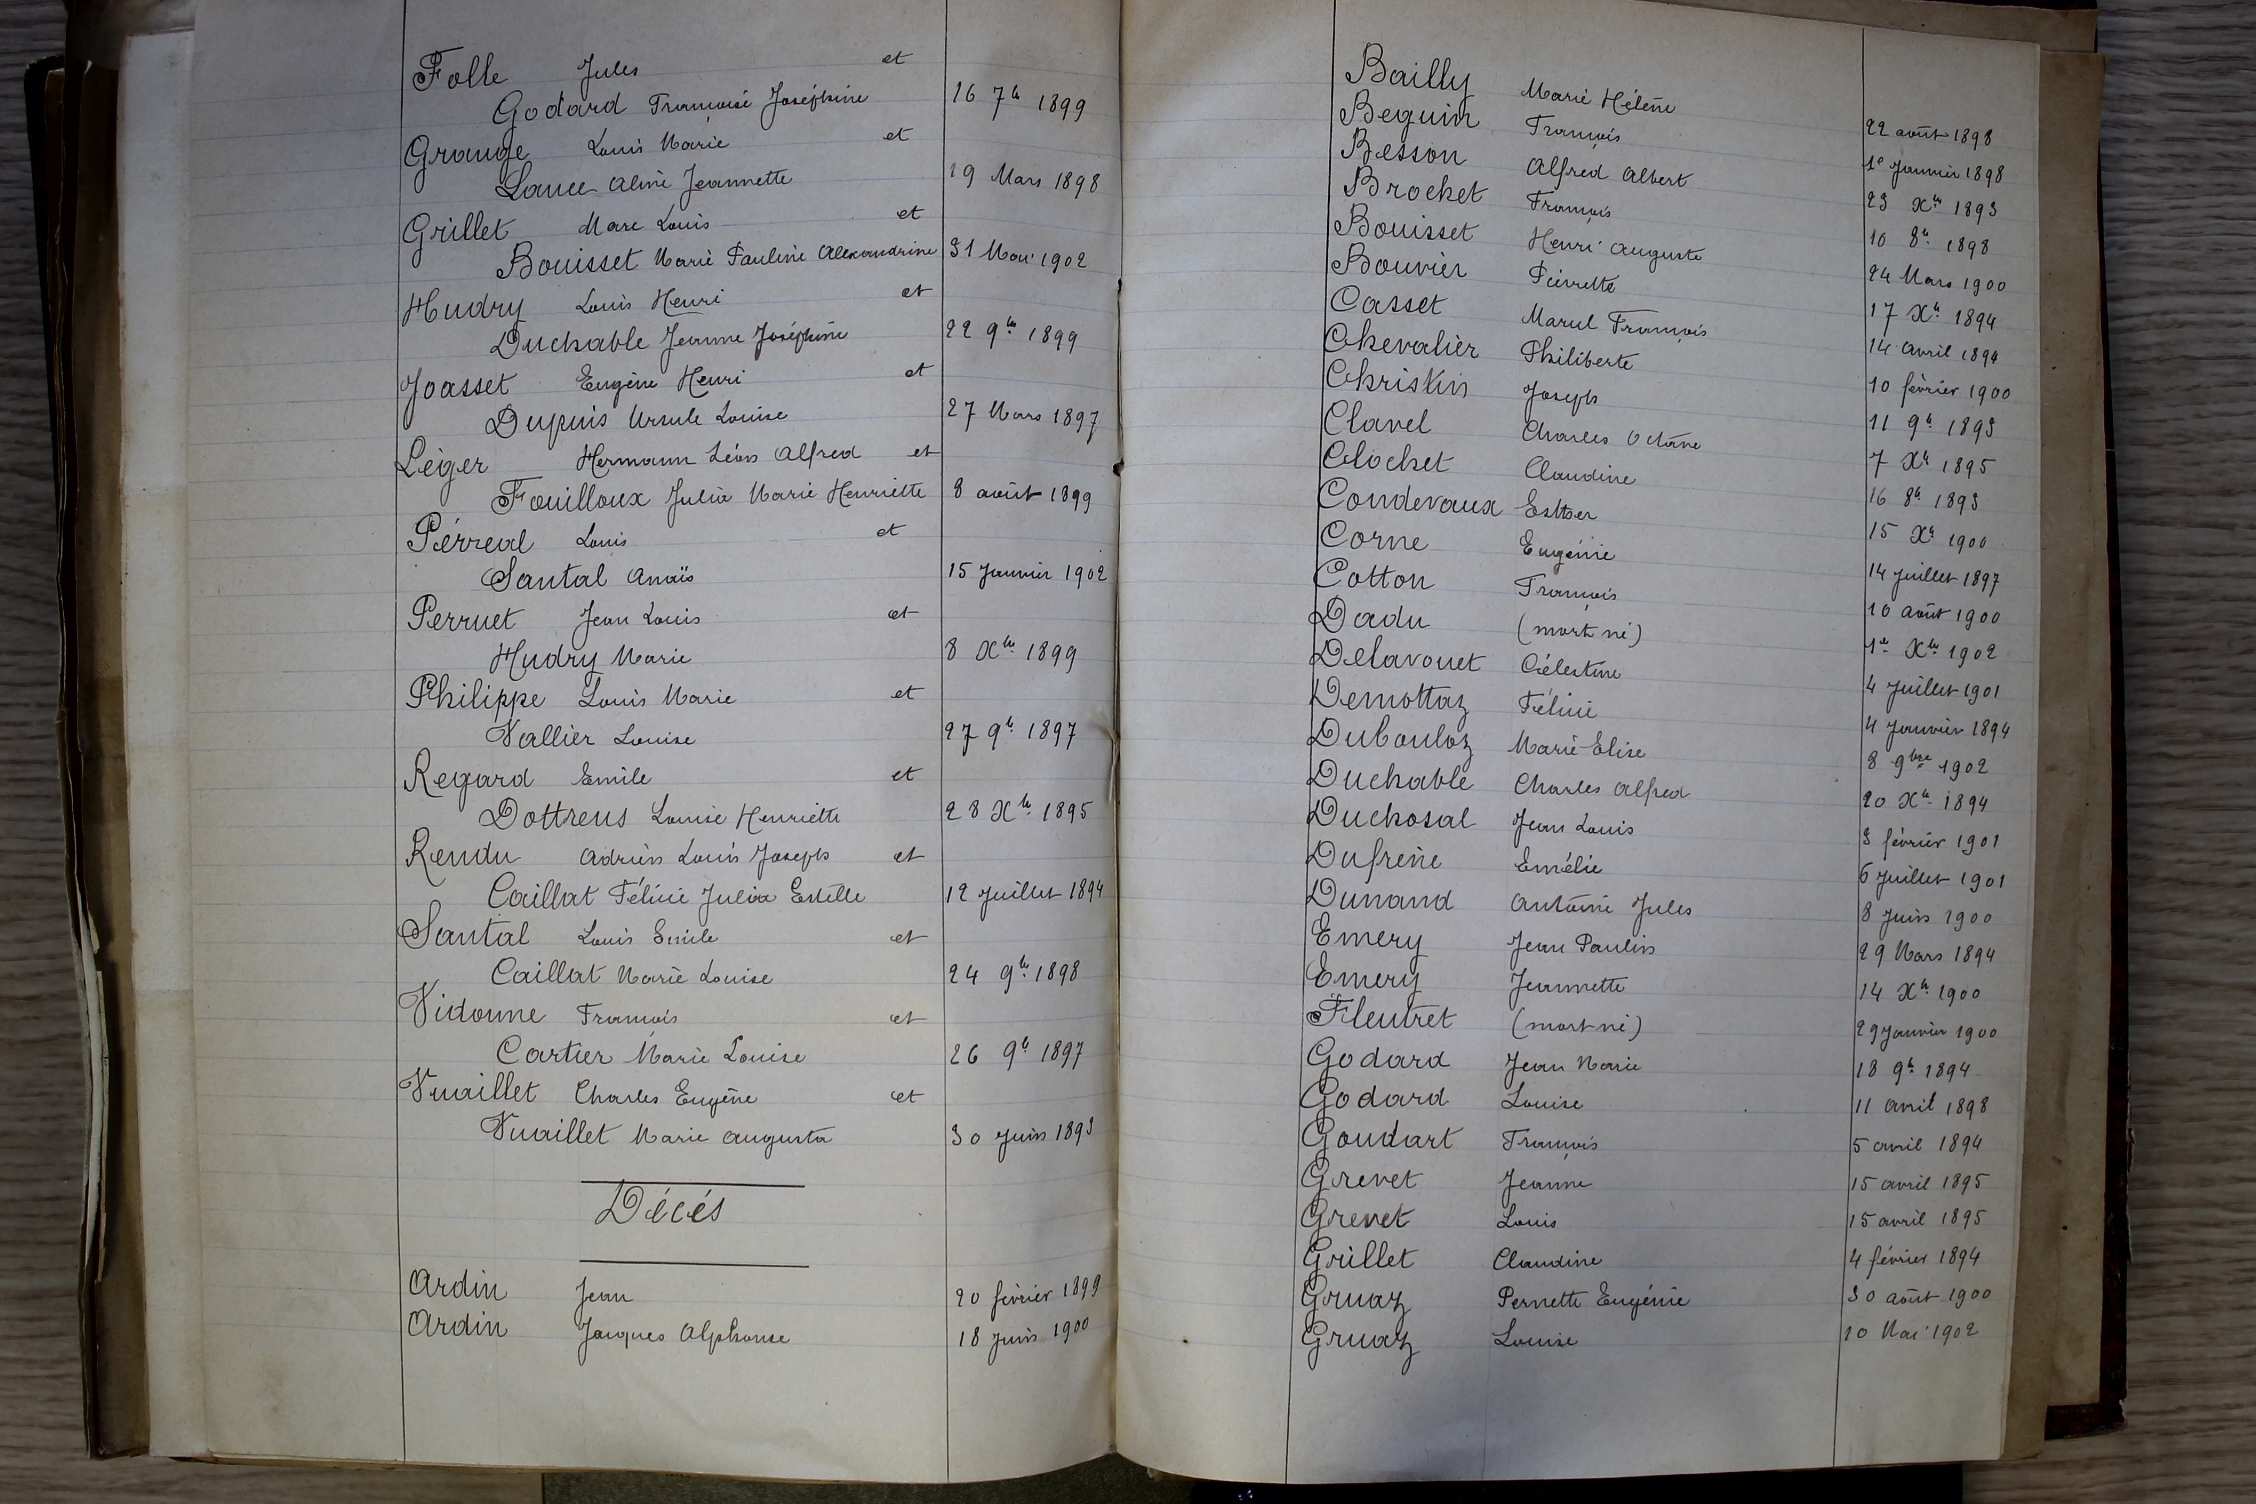 Folle Jules et
Godard Françoise Joséphine 16 7bre 1899
Grange Louis Marie et
Lance Aline Jeannette 19 Mars 1898
Grillet Marc Louis et
Bouisset Marie Pauline Alexandrine 31 Mai 1902
Hudry Louis Henri et
Duchable Jeanne Joséphine 22 9bre 1899
Joasset Eugène Henri et
Dupuis Ursule Louise 27 Mars 1897
Léger Hermann Léon Alfred et
Fouilloux Julie Marie Henriette 8 août 1899
Pérréal Louis et
Santal Anaïs 15 Janvier 1902
Perruet Jean Louis et
Hudry Marie 8 Xbre 1899
Philippe Louis Marie et
Vallier Louise 27 9bre 1897
Regard Emile et
Dottrens Louise Henriette 28 Xbre 1895
Rendu Adrien Louis Joseph et
Caillat Félicie Julia Estelle 12 Juillet 1894
Santal Louis Emile et
Caillat Marie Louise 24 9bre 1898
Vidonne François et
Cartier Marie Louise 26 9bre 1897
Vuaillet Charles Eugène et
Vuaillet Marie Augusta 30 Juin 1893
Décés
Ardin Jean 20 février 1899
Ardin Jacques Alphonse 18 Juin 1900
Bailly Marie Hélène 22 août 1898
Bequin François 1e Janvier 1898
Besson Alfred Albert 23 Xbre 1893
Brochet François 10 8bre 1898
Bouisset Henri Auguste 24 Mars 1900
Bouvier Pierrette 17 Xbre 1894
Casset Marcel François 14 Avril 1894
Chevalier Philiberte 10 février 1900
Christin Joseph 11 9bre 1893
Clavel Charles Octave 7 Xbre 1895
Clochet Claudine 16 8bre 1893
Condevaux Esther 15 Xbre 1900
Corne Eugénie 14 Juillet 1897
Cotton François 10 août 1900
Dadu (mort né) 1er Xbre 1902
Delavouet Célestine 4 Juillet 1901
Demottaz Félicie 4 Janvier 1894
Dubouloz Marie Elise 8 9bre 1902
Duchable Charles Alfred 20 Xbre 1894
Duchosal Jean Louis 3 février 1901
Dufrene Emélie 6 Juillet 1901
Dunand Antoine Jules 8 Juin 1900
Emery Jean Paulin 29 Mars 1894
Emery Jeannette 14 Xbre 1900
Fleutret (mort né) 29 Janvier 1900
Godard Jean Marie 18 9bre 1894
Godard Louise 11 avril 1898
Goudart François 5 avril 1894
Grevet Jeanne 15 avril 1895
Grevet Louis 15 avril 1895
Grillet Claudine 4 février 1894
Gruaz Pernette Eugénie 30 août 1900
Gruaz Louise 10 Mai 1902